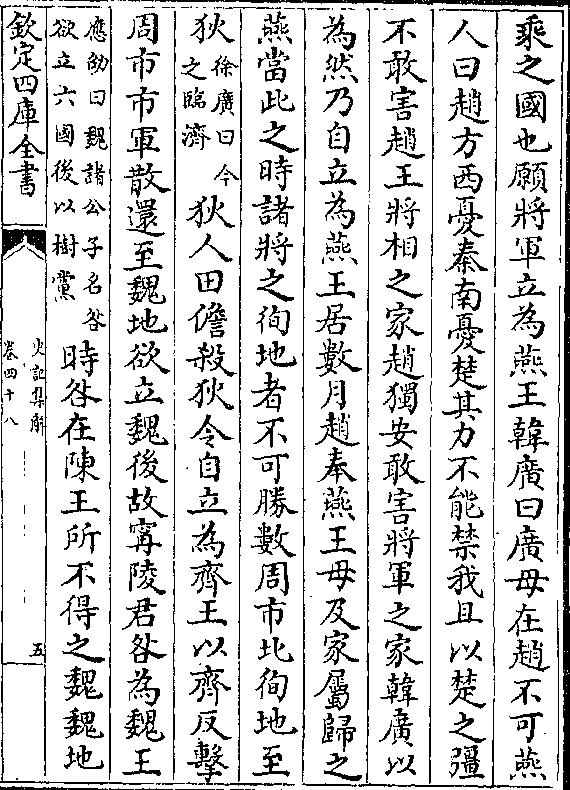 乘之國也願將軍立為燕王韓廣曰廣母在趙不可燕
人曰趙方西憂秦南憂楚其力不能禁我且以楚之彊
不敢害趙王將相之家趙獨安敢害將軍之家韓廣以
為然乃自立為燕王居數月趙奉燕王母及家屬歸之
燕當此之時諸將之徇地者不可勝數周市北徇地至
狄徐廣曰今之臨濟狄人田儋殺狄令自立為齊王以齊反擊
周市市軍散還至魏地欲立魏後故甯陵君咎為魏王
應劭曰魏諸公子名咎欲立六國後以樹黨時咎在陳王所不得之魏魏地
欽定四庫全書
史記集解
卷四十八
五